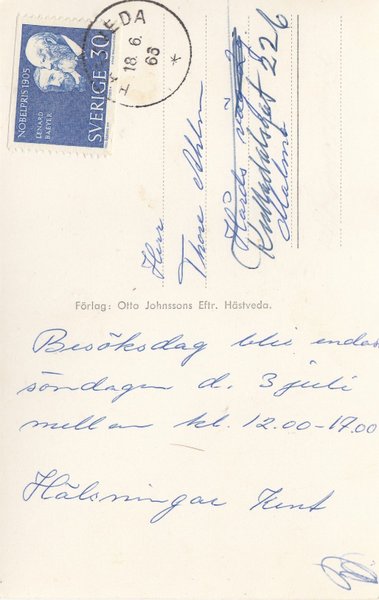 NOBELPRIS 1905
LENARD
BAEYER
SVERIGE 30
VEDA
18.6.
66
Herr
Thore
Malmö
226
Förlag: Otto Johnssons Eftr. Hästveda.
Besöksdag bli endas
söndagen d. 3 juli
mellan kl. 12.00-17.00
Hälsningar Kent